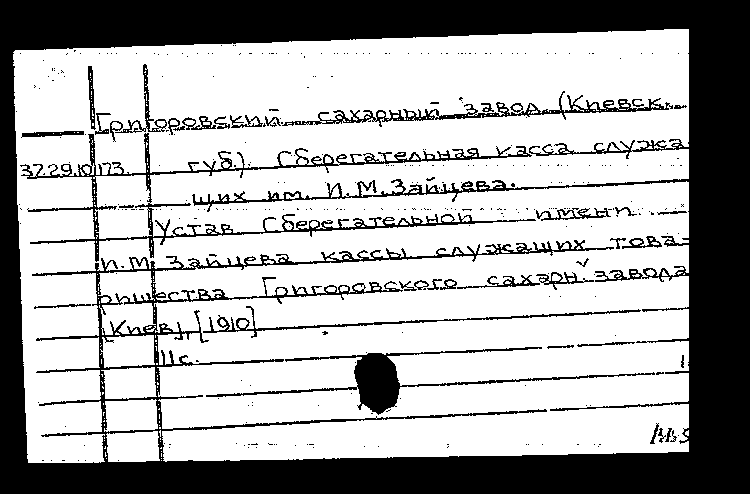 Григоровский сахарный завод (Киевск.
37.29.10.173 губ.). Сберегательная касса служа-
щих им. И.М. Зайцева.
Устав Сберегательной имени
И.М. Зайцева кассы служащих това-
рищества Григоровского сахарн. завода
[Киев], [1910]
11 с.